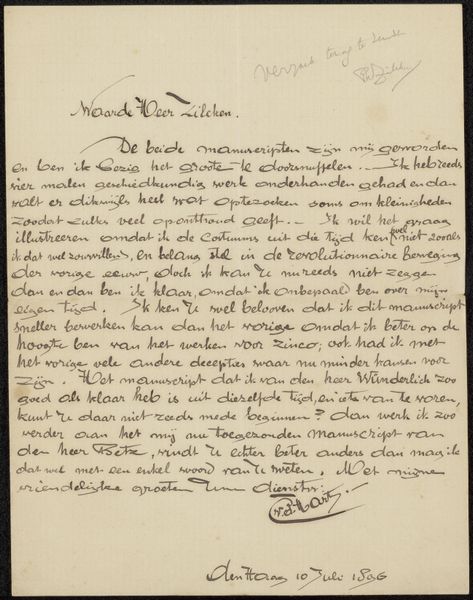 verzoek terug te zenden
PhZilcken
Waarde Heer Zilcken.
De beide manuscripten zijn mij geworden
en ben ik bezig het groote te doorsnuffelen — Ik heb reeds
vier malen geschiedkundig werk onderhanden gehad en dan
valt er dikwijls heel wat optezoeken soms om kleinigheden
zoodat zulks veel oponthoud geeft. — Ik wil het graag
illustreeren omdat ik de Costuums uit die tijd ken, wel niet zooals
ik dat wel zou willen, en belang stel in de revolutionnaire beweging
der vorige eeuw, doch ik kan U nu reeds niet zeggen
dan en dan ben ik klaar, omdat ik onbepaald ben over mijn
eigen tijd. Ik kan U wel belooven dat ik dit manuscript
sneller bewerken kan dan het vorige omdat ik beter op de
hoogte ben van het werken voor zinco; ook had ik met
het vorige vele andere decepties waar nu minder kansen voor
zijn. Het manuscript dat ik van den heer Wunderlich zoo
goed als klaar heb is uit dierzelfde tijd, en iets van te voren,
kunt U daar niet reeds mede beginnen? dan werk ik zoo
verder aan het mij nu toegezonden manuscript van
den heer, vindt U echter beter anders dan mag ik
dat wel met een enkel woord van U weten. Met mijne
vriendelijke groeten Uw dienstw.
den Haag 10 Juli 1896